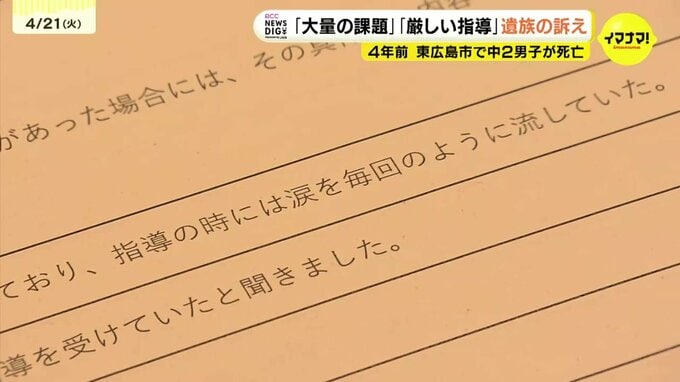 4/21(火)
RCC NEWS DIG
「大量の課題」「厳しい指導」遺族の訴え
4年前 東広島市で中2男子が死亡
イマナマ!
があった場合には、その真
内容
ており、指導の時には涙を毎回のように流していた。
導を受けていたと聞きました。